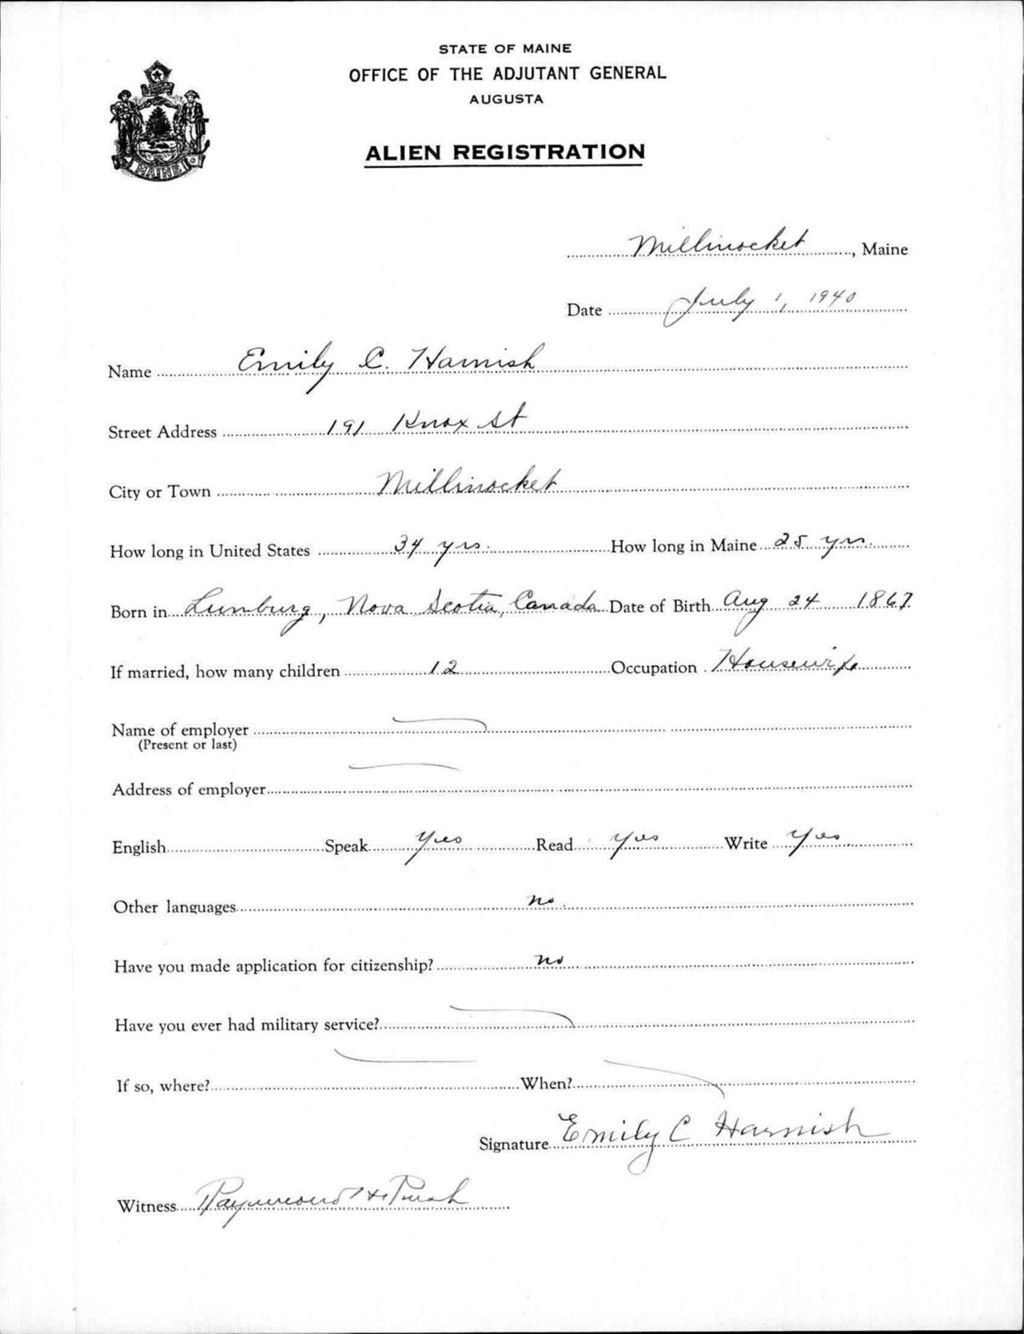 STATE OF MAINE
OFFICE OF THE ADJUTANT GENERAL
AUGUSTA
ALIEN REGISTRATION
MAINE
Millinocket, Maine
Date July 1, 1940
Name Emily C. Harnish
Street Address 191 Knox St
City or Town Millinocket
How long in United States 34 yrs. How long in Maine 25 yrs.
Born in Lunburg, Nova Scotia, Canada Date of Birth Aug 24 1867
If married, how many children 12 Occupation Housewife
Name of employer
(Present or last)
Address of employer
English Speak Yes Read Yes Write Yes
Other languages no
Have you made application for citizenship? no
Have you ever had military service?
If so, where? When?
Signature Emily C Harnish
Witness Raymond H